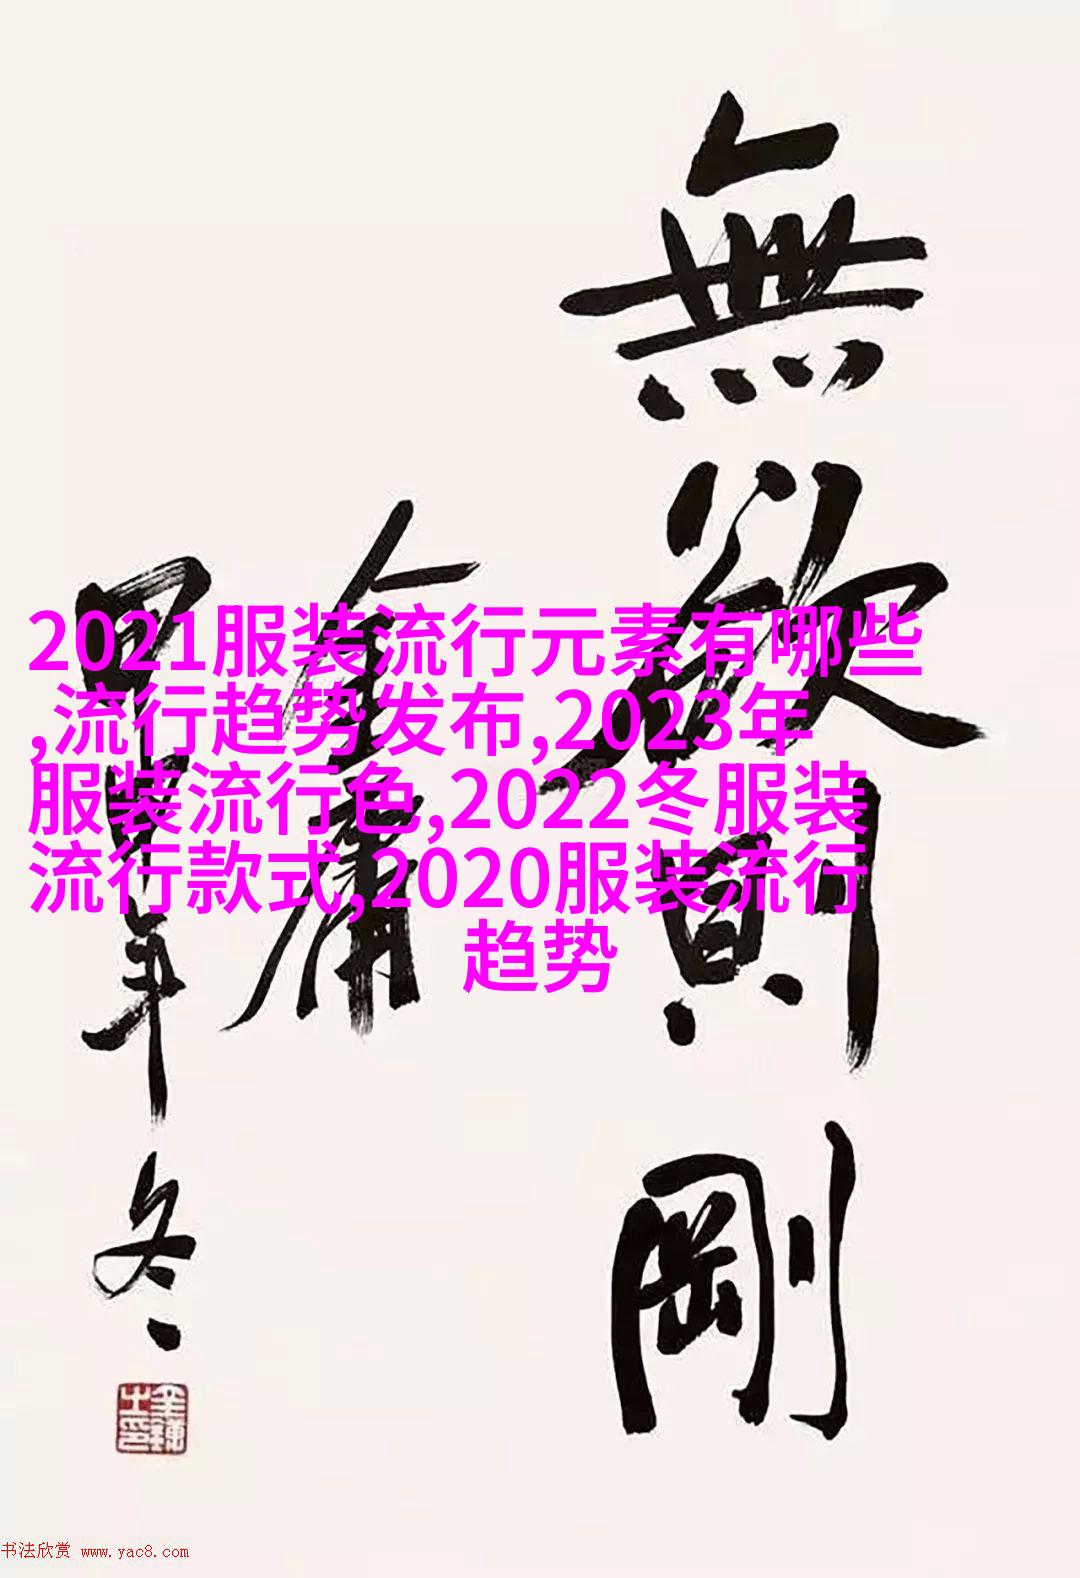 無欲則剛
金庸
甲申年冬
2021服装流行元素有哪些
,流行趋势发布,2023年
服装流行色,2022冬服装
流行款式,2020服装流行
趋势
书法欣赏 www.yac8.com